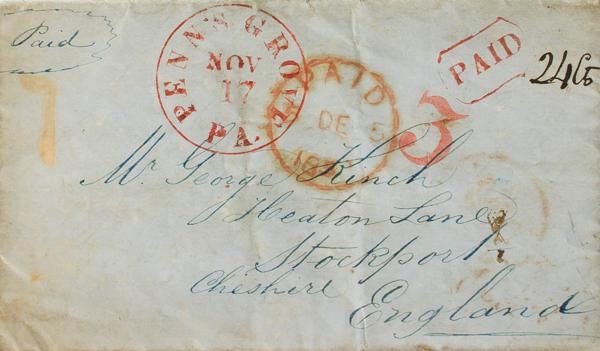 Paid
PENN'S GROVE
NOV
17
PA.
PAID
DE 5
PAID
24 Cts
Mr. George Kinch
Heaton Lane
Stockport
Cheshire
England